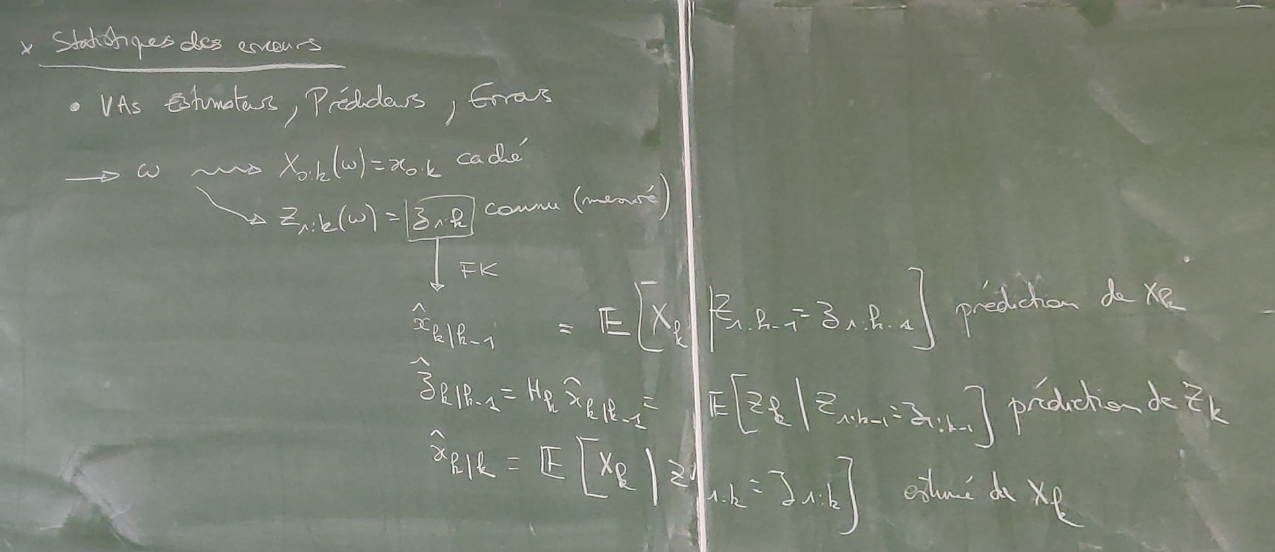 × Statistiques des erreurs
• VAs Estimateurs, Prédicteurs, Erreurs
→ ω ⇝ X₀:ₖ(ω) = x₀:ₖ caché
↘ Z₁:ₖ(ω) = z₁:ₖ connu (mesuré)
↓ FK
x̂ₖ|ₖ₋₁ = 𝔼[Xₖ | Z₁:ₖ₋₁ = z₁:ₖ₋₁] prédiction de Xₖ
ẑₖ|ₖ₋₁ = Hₖ x̂ₖ|ₖ₋₁ = 𝔼[Zₖ | Z₁:ₖ₋₁ = z₁:ₖ₋₁] prédiction de Zₖ
x̂ₖ|ₖ = 𝔼[Xₖ | Z₁:ₖ = z₁:ₖ] estimé de Xₖ